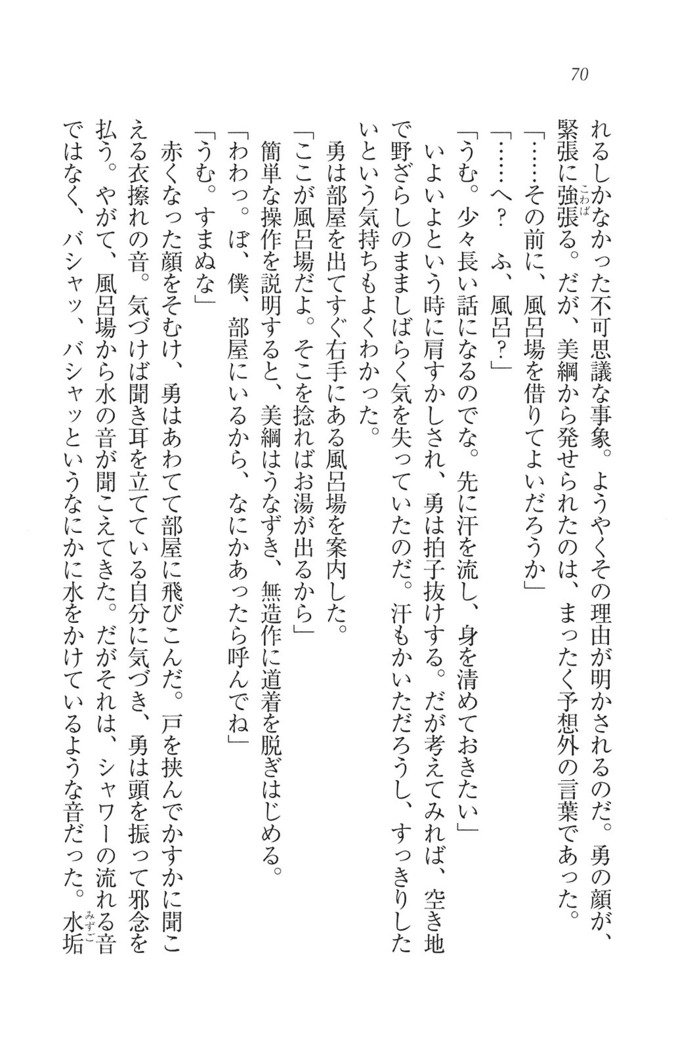 70
れるしかなかった不可思議な事象。ようやくその理由が明かされるのだ。勇の顔が、
緊張に強張る。だが、美綱から発せられたのは、まったく予想外の言葉であった。
こわば
「……その前に、風呂場を借りてよいだろうか」
「……へ？　ふ、風呂？」
「うむ。少々長い話になるのでな。先に汗を流し、身を清めておきたい」
いよいよという時に肩すかしされ、勇は拍子抜けする。だが考えてみれば、空き地
で野ざらしのまましばらく気を失っていたのだ。汗もかいただろうし、すっきりした
いという気持ちもよくわかった。
勇は部屋を出てすぐ右手にある風呂場を案内した。
「ここが風呂場だよ。そこを捻ればお湯が出るから」
簡単な操作を説明すると、美綱はうなずき、無造作に道着を脱ぎはじめる。
「わわっ。ぼ、僕、部屋にいるから、なにかあったら呼んでね」
「うむ。すまぬな」
赤くなった顔をそむけ、勇はあわてて部屋に飛びこんだ。戸を挟んでかすかに聞こ
える衣擦れの音。気づけば聞き耳を立てている自分に気づき、勇は頭を振って邪念を
払う。やがて、風呂場から水の音が聞こえてきた。だがそれは、シャワーの流れる音
ではなく、バシャッ、バシャッというなにかに水をかけているような音だった。水垢
みずご